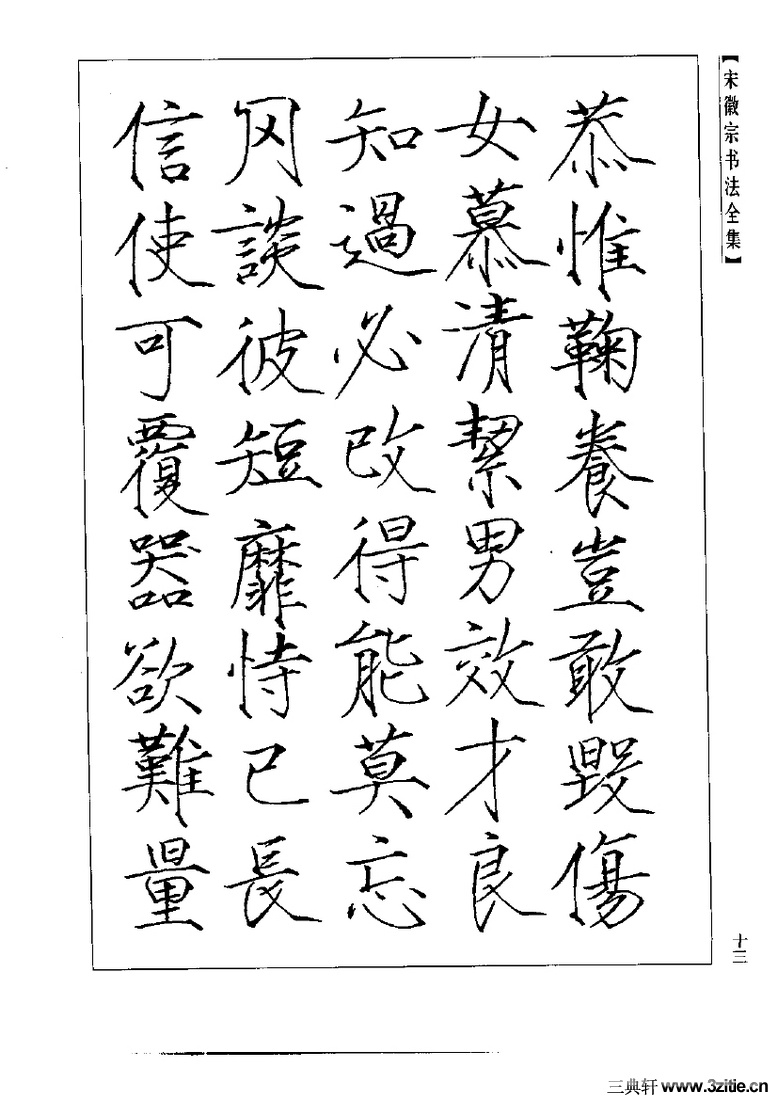 【宋徽宗书法全集】
恭惟鞠養豈敢毀傷
女慕清絜男效才良
知過必改得能莫忘
罔談彼短靡恃己長
信使可覆器欲難量
十三
三典轩 www.3zitie.cn